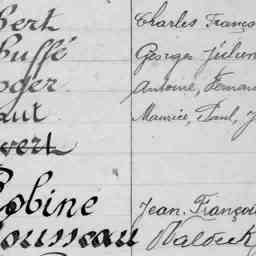 bert Charles Franço
buffé Georges Julien
oger Antoine, Fernan
aut Maurice, Paul, J
vert
Robine Jean-Françoi
ousseau Waldeck,